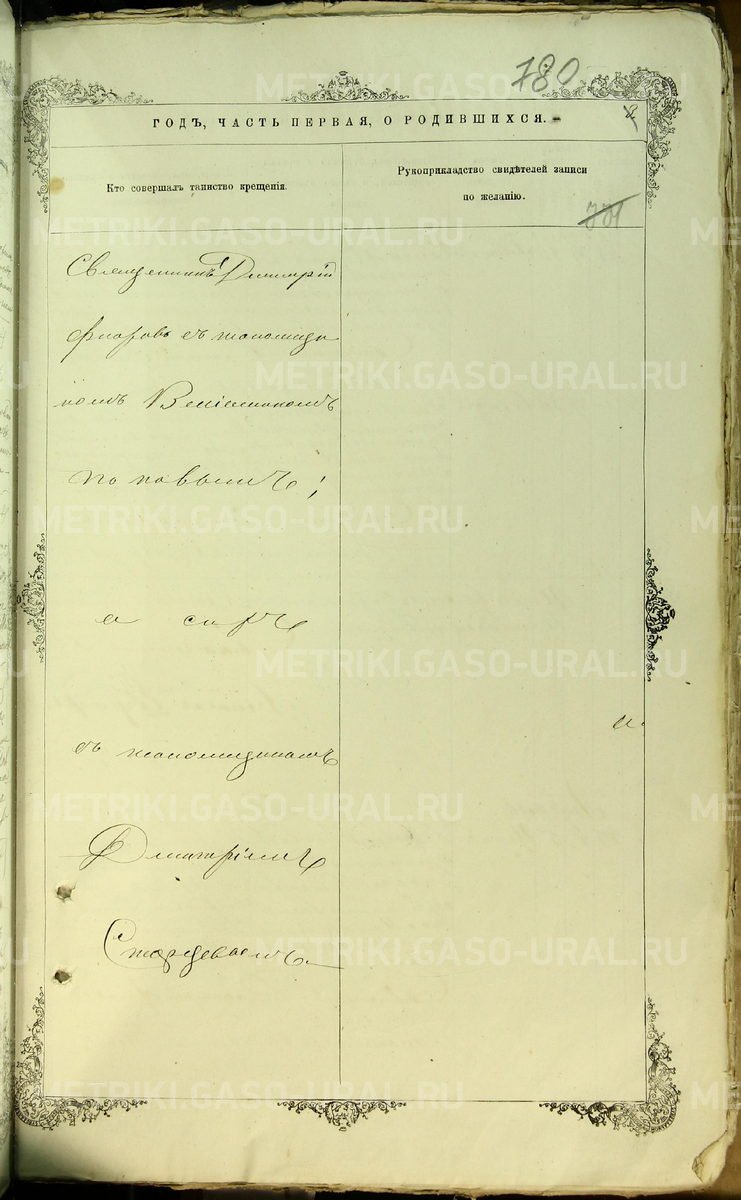 780
ГОДЪ, ЧАСТЬ ПЕРВАЯ, О РОДИВШИХСЯ.
Кто совершалъ таинство крещенія.
Рукоприкладство свидѣтелей записи
по желанію.
Священникъ Димитрій
съ псаломщи
комъ Веніаминомъ
Поповымъ;
съ псаломщикомъ
Дмитріемъ
METRIKI.GASO-URAL.RU